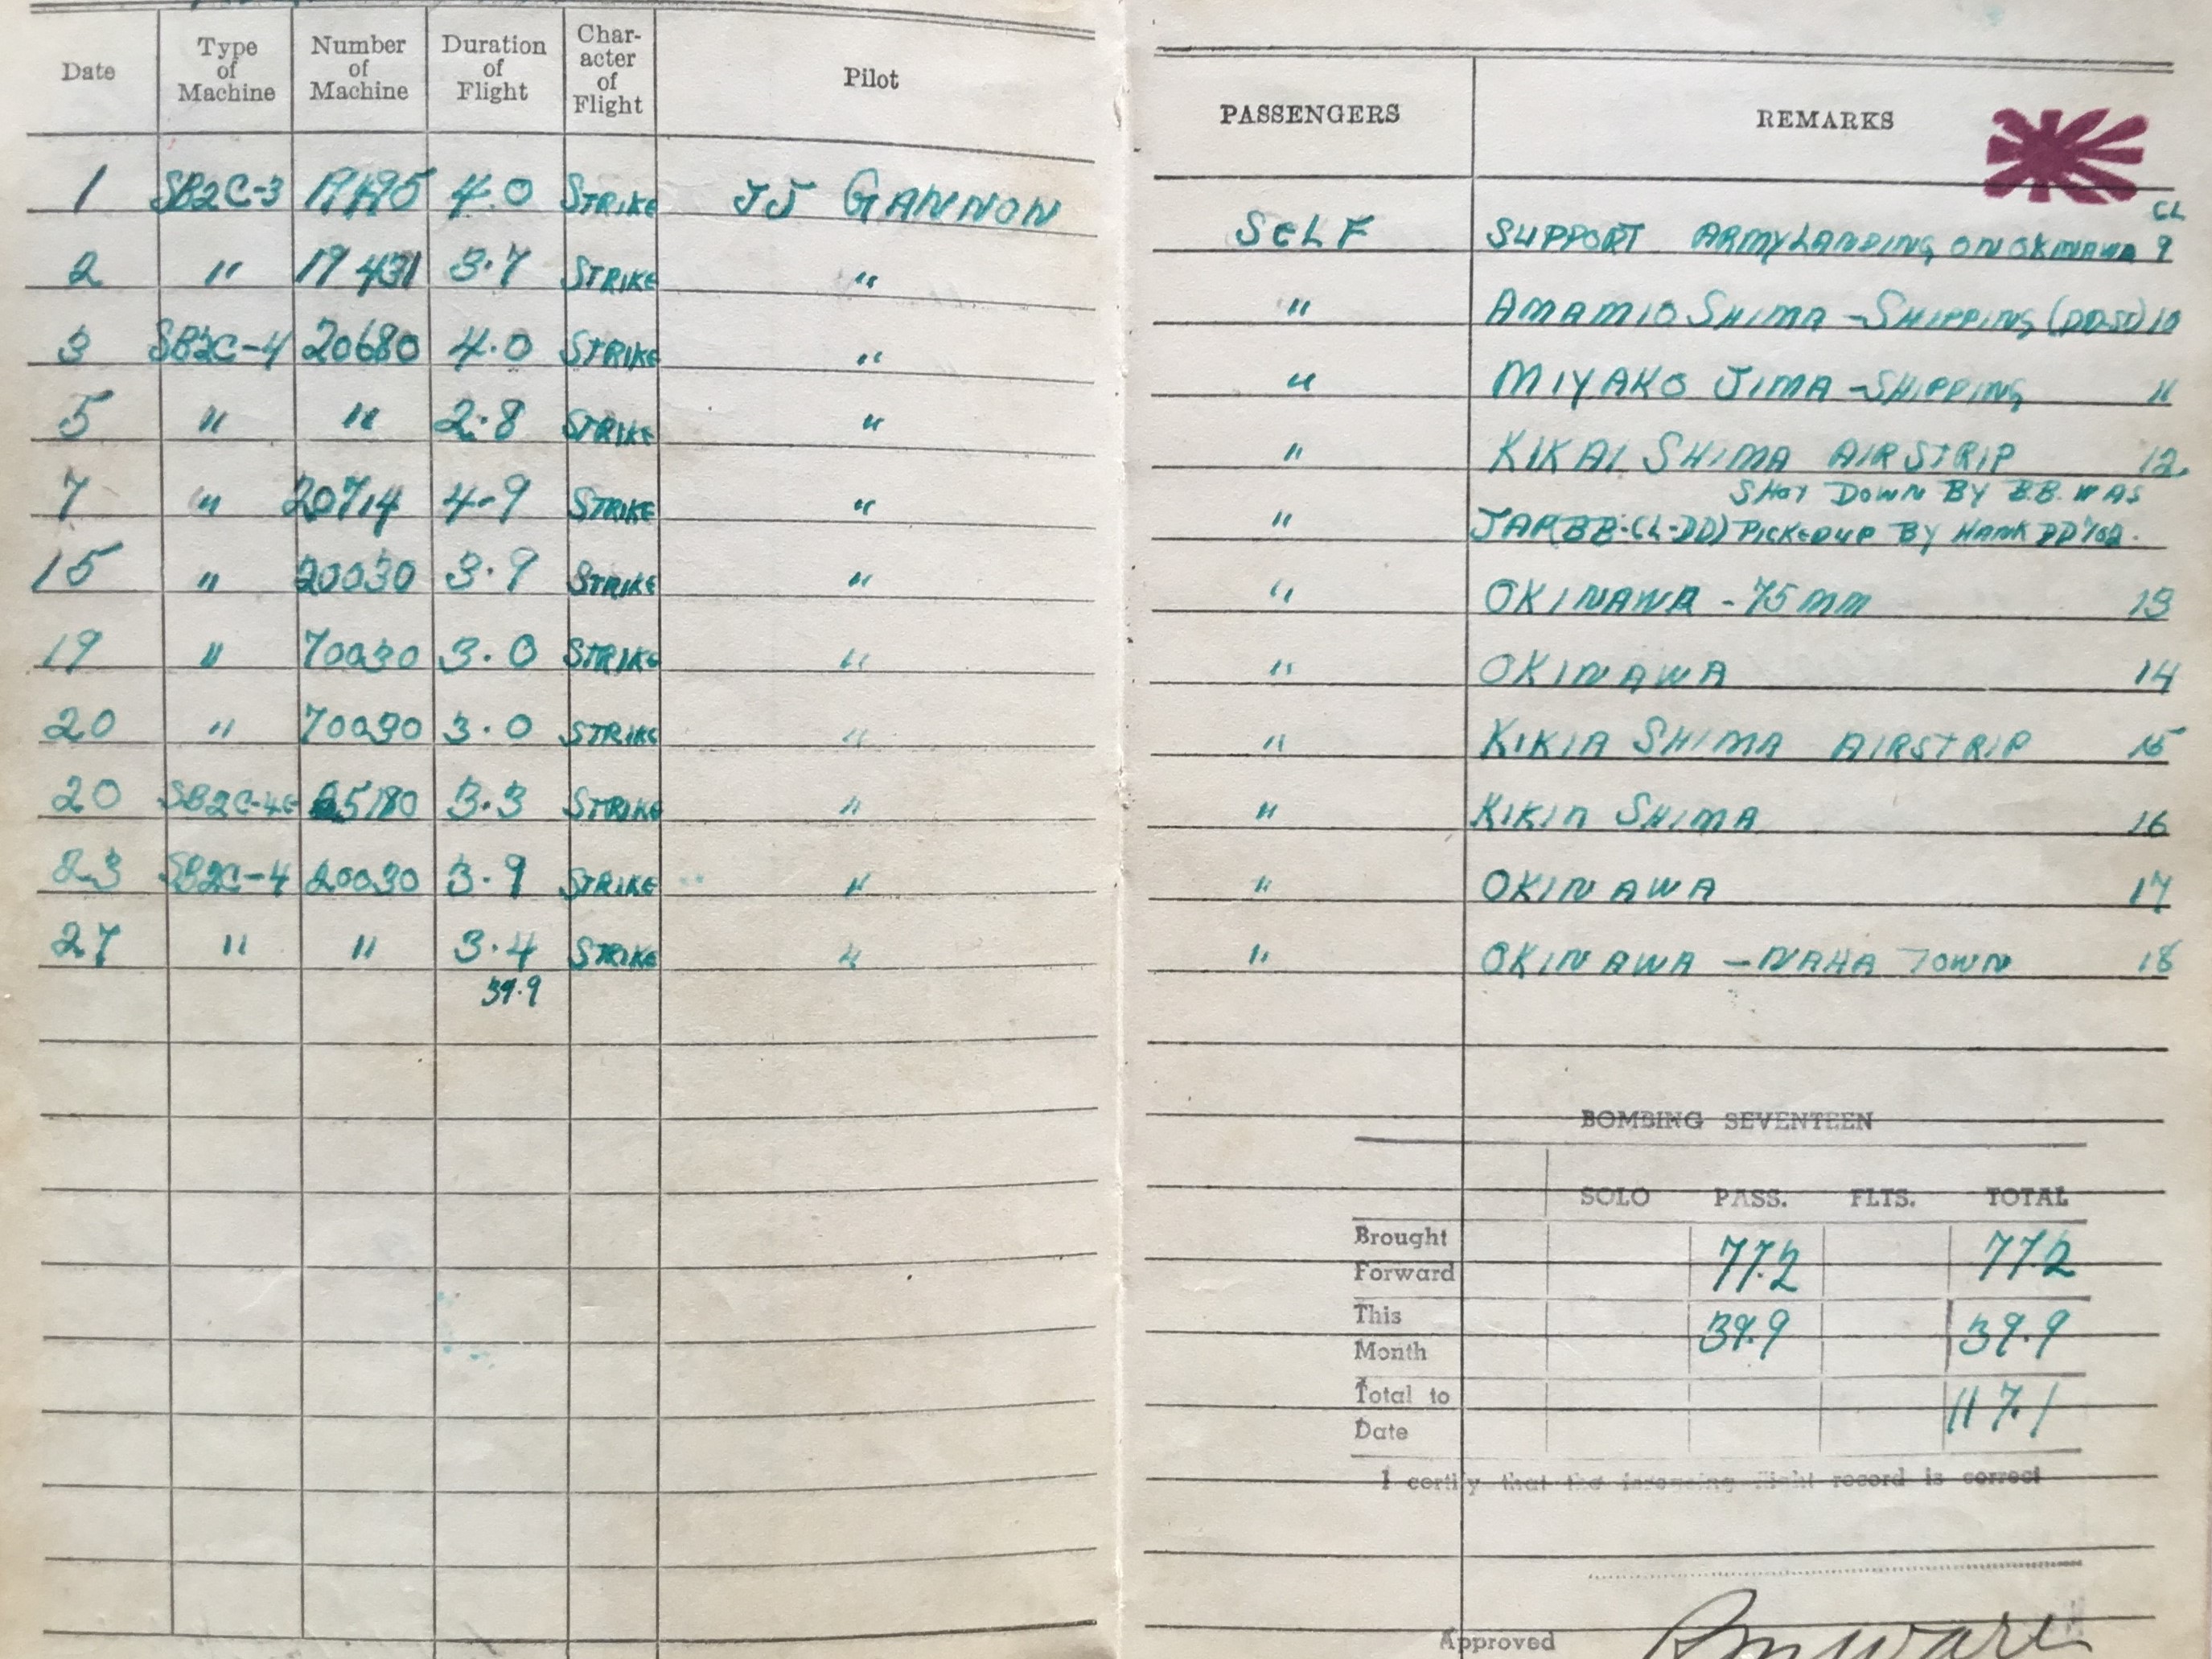 Date Type of Machine Number of Machine Duration of Flight Char-acter of Flight Pilot PASSENGERS REMARKS
CL
1 SB2C-3 19495 4.0 STRIKE JJ GANNON SELF SUPPORT ARMY LANDING ON OKINAWA 9
2 " 19431 3.7 STRIKE " " AMAMIO SHIMA - SHIPPING (DD-ST) 10
3 SB2C-4 20680 4.0 STRIKE " " MIYAKO JIMA - SHIPPING 11
5 " " 2.8 STRIKE " " KIKAI SHIMA AIRSTRIP 12
SHOT DOWN BY B.B. WAS
7 " 20714 4.9 STRIKE " " JAP(BB-CL-DD) PICKED UP BY HANK DD702.
15 " 20030 3.9 STRIKE " " OKINAWA - 75 MM 13
19 " 70030 3.0 STRIKE " " OKINAWA 14
20 " 70030 3.0 STRIKE " " KIKIA SHIMA AIRSTRIP 15
20 SB2C-4E 3.3 STRIKE " " KIKIA SHIMA 16
23 SB2C-4 20030 3.9 STRIKE " " OKINAWA 17
27 " " 3.4 STRIKE " " OKINAWA - NAHA TOWN 18
39.9
BOMBING SEVENTEEN
SOLO PASS. FLTS. TOTAL
Brought Forward 77.2 77.2
This Month 39.9 39.9
Total to Date 117.1
I certify that the foregoing flight record is correct
Approved